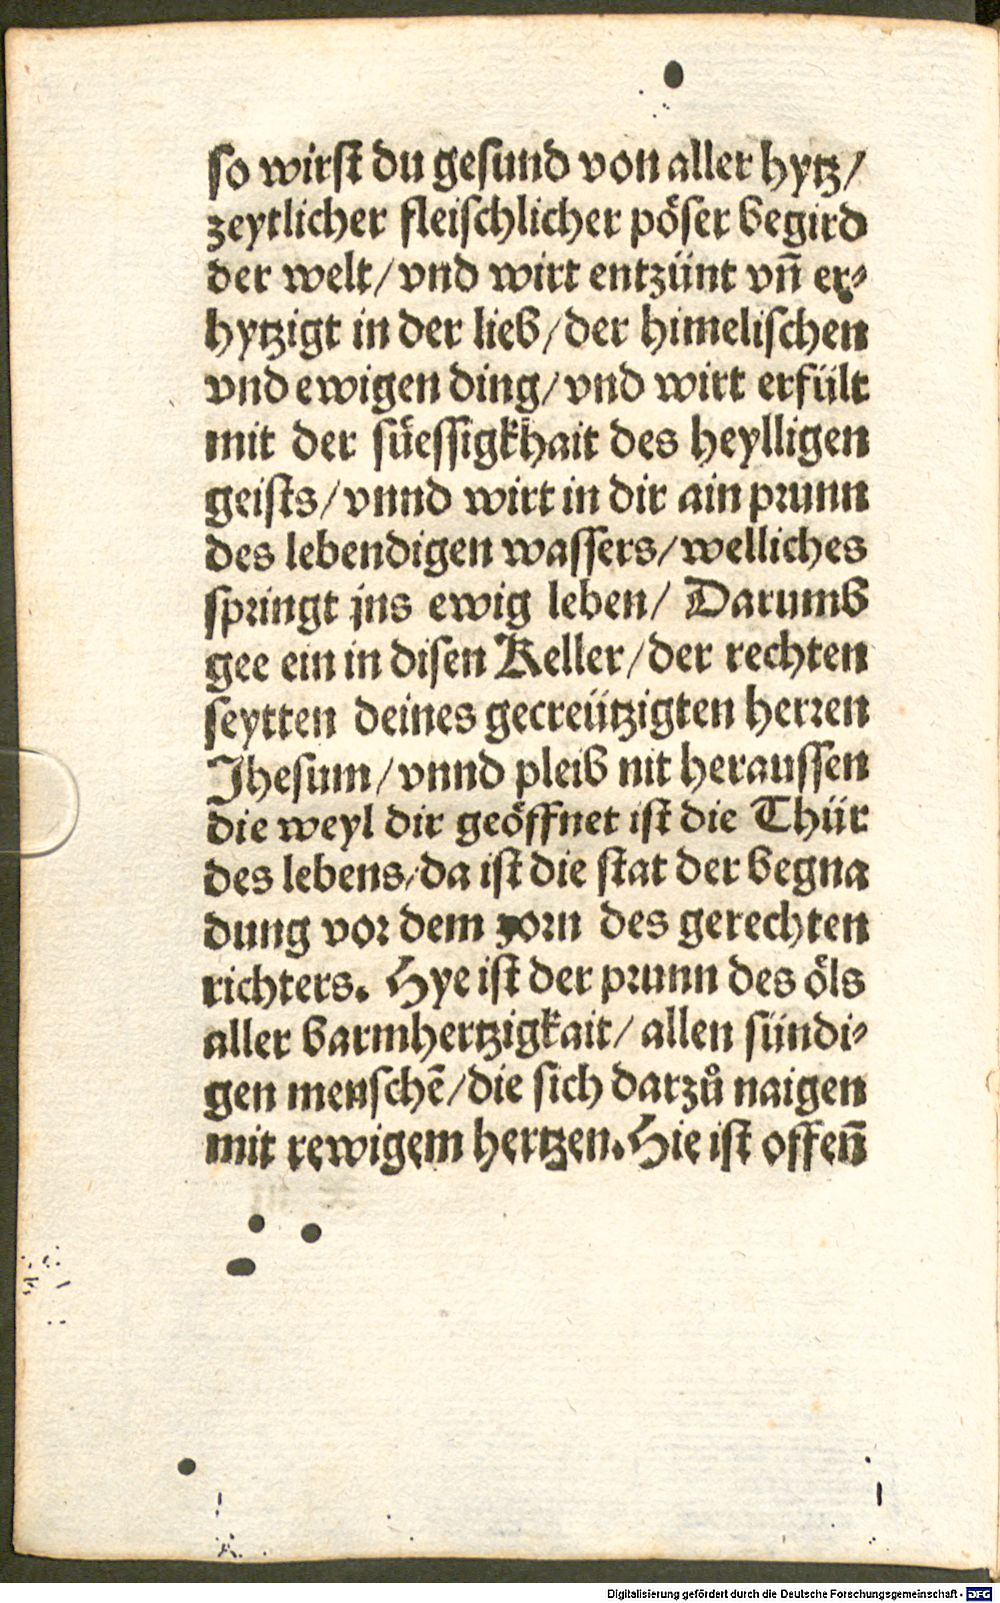 so wirst du gesund von aller hytz/
zeytlicher fleischlicher pöser begird
der welt/vnd wirt entzünt vn̄ er⸗
hytzigt in der lieb/der himelischen
vnd ewigen ding/vnd wirt erfült
mit der süessigkhait des heylligen
geists/vnnd wirt in dir ain prunn
des lebendigen wassers/welliches
springt jns ewig leben/ Darumb
gee ein in disen Keller/der rechten
seytten deines gecreützigten herren
Jhesum/vnnd pleib nit heraussen
die weyl dir geöffnet ist die Thür
des lebens/da ist die stat der begna
dung vor dem zorn des gerechten
richters. Hye ist der prunn des öls
aller barmhertzigkait/ allen sündi⸗
gen menschē/die sich darzů naigen
mit rewigem hertzen. Hie ist offen̄
Digitalisierung gefördert durch die Deutsche Forschungsgemeinschaft - DFG